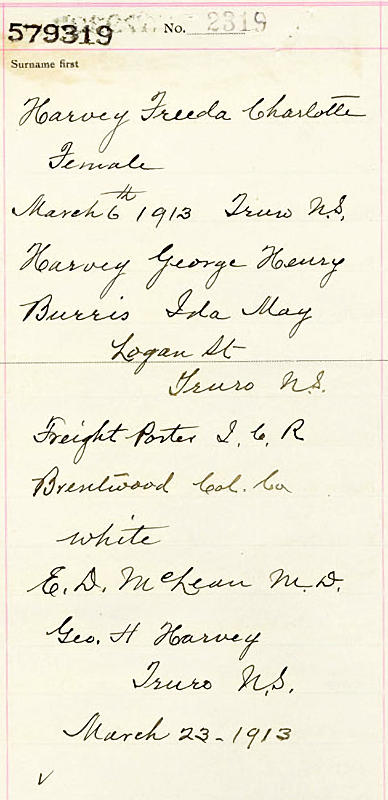 579319 No. 2319
Surname first
Harvey Freeda Charlotte
Female
March 6th 1913 Truro N.S.
Harvey George Henry
Burris Ida May
Logan St
Truro N.S.
Freight Porter I. C. R
Brentwood Col. Co
white
E. D. McLean M.D.
Geo. H Harvey
Truro N.S.
March 23-1913